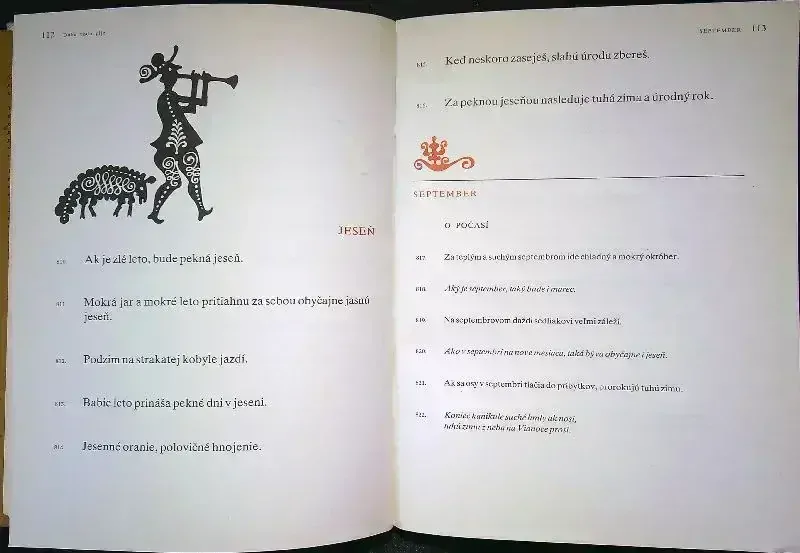 112
JESEŇ
810. Ak je zlé leto, bude pekná jeseň.
811. Mokrá jar a mokré leto pritiahnu za sebou obyčajne jasnú
jeseň.
812. Podzim na strakatej kobyle jazdí.
813. Babie leto prináša pekné dni v jeseni.
814. Jesenné oranie, polovičné hnojenie.
SEPTEMBER 113
815. Keď neskoro zaseješ, slabú úrodu zbereš.
816. Za peknou jeseňou nasleduje tuhá zima a úrodný rok.
SEPTEMBER
O POČASÍ
817. Za teplým a suchým septembrom ide chladný a mokrý október.
818. Aký je september, taký bude i marec.
819. Na septembrovom daždi sedliakovi veľmi záleží.
820. Ako v septembri na nove mesiaca, taká býva obyčajne i jeseň.
821. Ak sa osy v septembri tlačia do príbytkov, prorokujú tuhú zimu.
822. Koniec kanikule suché hmly ak nosí,
tuhú zimu z neba na Vianoce prosí.